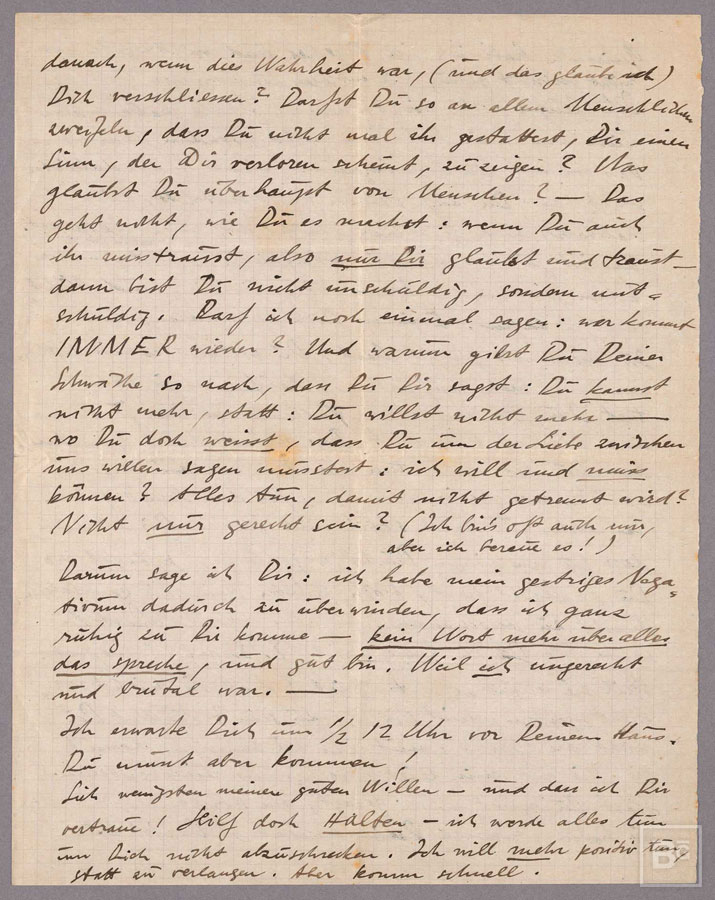 danach, wenn dies Wahrheit war, (und das glaube ich)
Dich verschliessen? Darfst Du so an allem Menschlichen
zweifeln, dass Du nicht mal ihr gestattest, Dir einen
Sinn, der Dir verloren scheint, zu zeigen? Was
glaubst Du überhaupt von Menschen? — Das
geht nicht, wie Du es machst: wenn Du auch
ihr misstraust, also nur Dir glaubst und traust —
dann bist Du nicht unschuldig, sondern mit=
schuldig. Darf ich noch einmal sagen: wer kommt
IMMER wieder? Und warum gibst Du Deiner
Schwäche so nach, dass Du Dir sagst: Du kannst
nicht mehr, statt: Du willst nicht mehr —
wo Du doch weisst, dass Du um der Liebe zwischen
uns willen sagen müsstest: ich will und muss
können? Alles tun, damit nicht getrennt wird?
Nicht nur gerecht sein? (Ich bin's oft auch nur,
aber ich bereue es!)
Darum sage ich Dir: ich habe mein gestriges Nega=
tivum dadurch zu überwinden, dass ich ganz
ruhig zu Dir komme — kein Wort mehr über alles
das spreche, und gut bin. Weil ich ungerecht
und brutal war. —
Ich erwarte Dich um 1/2 12 Uhr vor Deinem Haus.
Du musst aber kommen!
Sieh wenigsten meinen guten Willen — und dass ich Dir
vertraue! Hilf doch Halten — ich werde alles tun
um Dich nicht abzuschrecken. Ich will mehr positiv tun,
statt zu verlangen. Aber komm schnell.